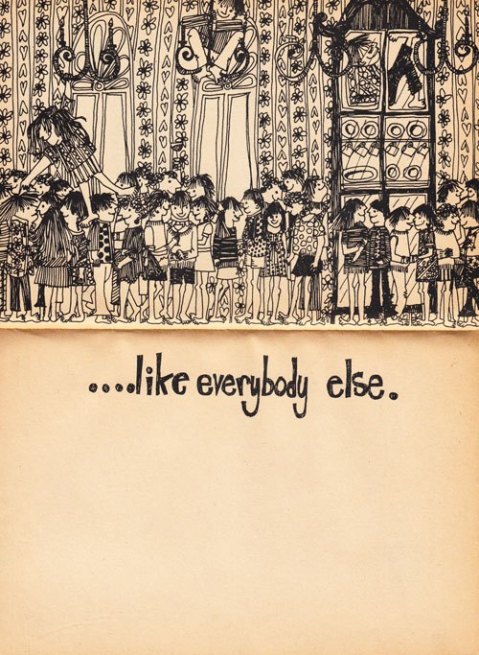 ....like everybody else.